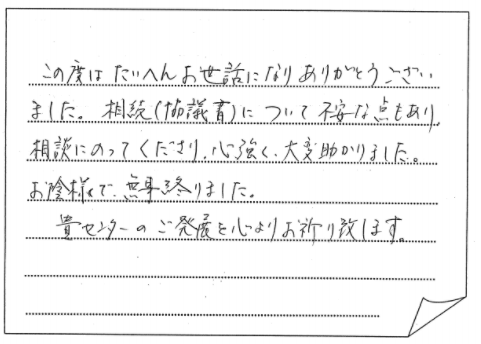 この度はたいへんお世話になりありがとうござい
ました。相続(協議書)について不安な点もあり、
相談にのってくださり、心強く、大変助かりました。
お陰様で、無事終りました。
貴センターのご発展を心よりお祈り致します。